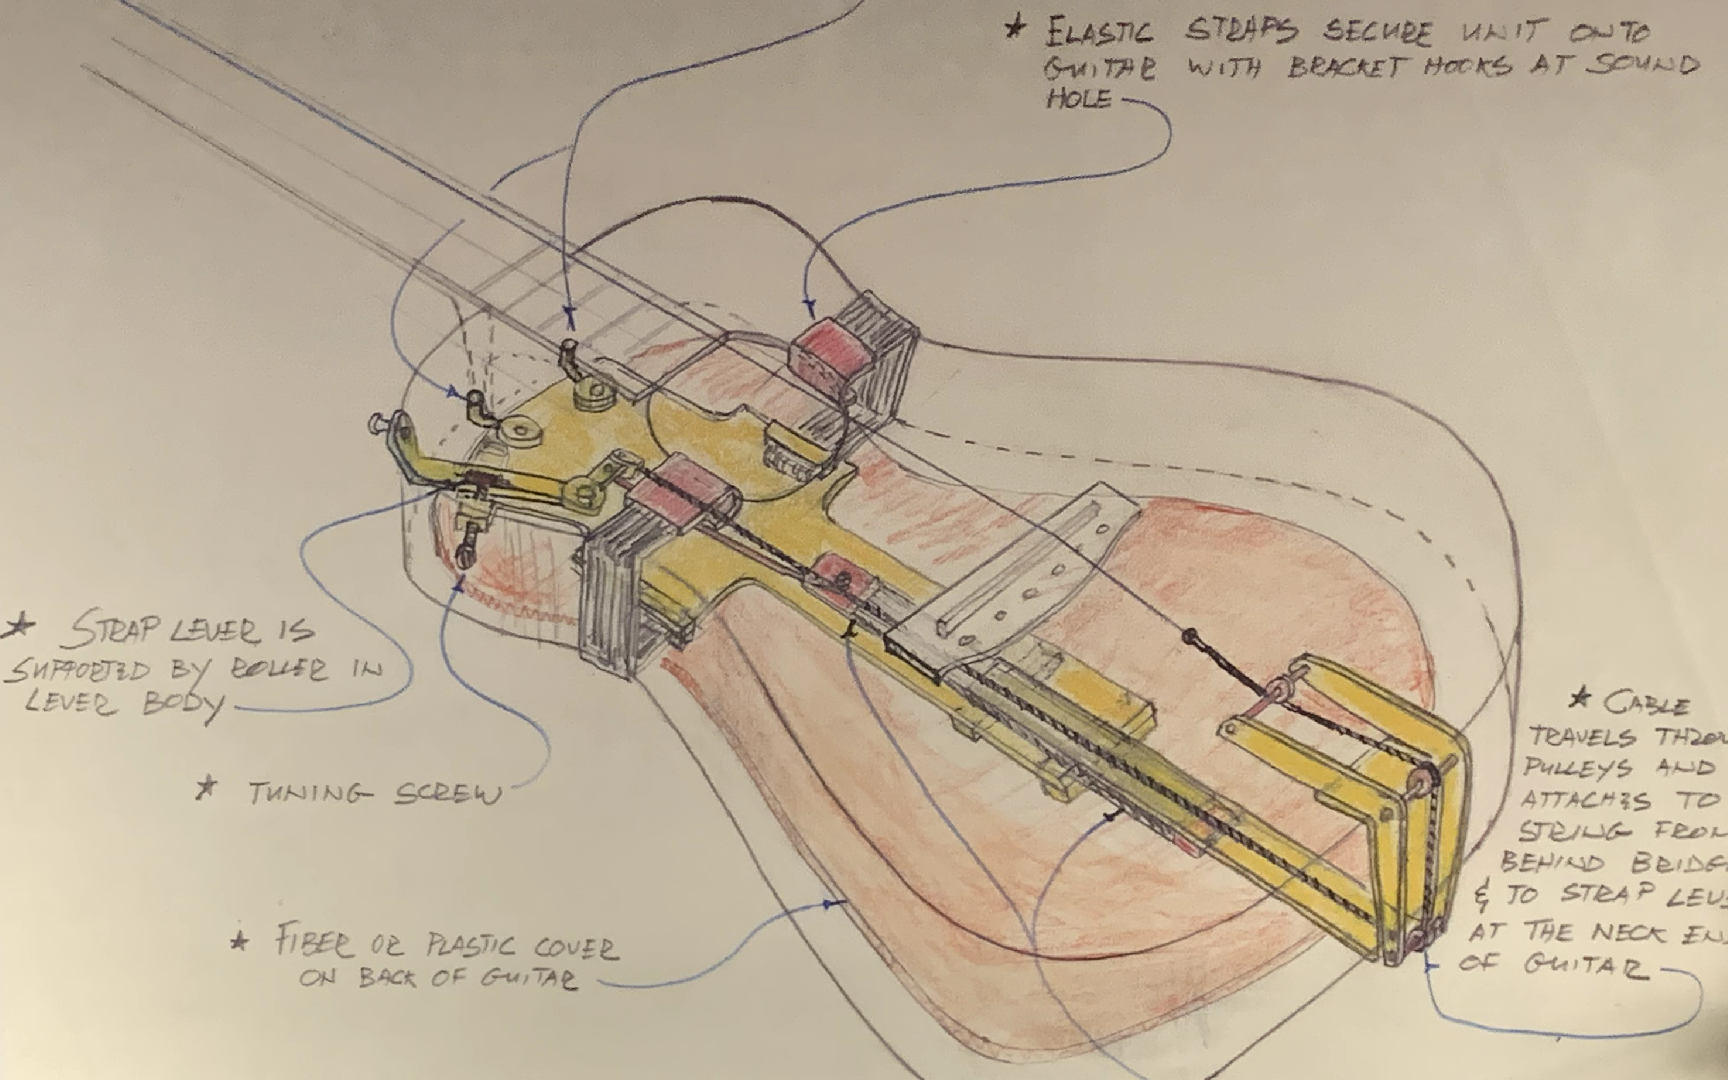 ★ ELASTIC STRAPS SECURE UNIT ONTO
GUITAR WITH BRACKET HOOKS AT SOUND
HOLE
★ STRAP LEVER IS
SUPPORTED BY ROLLER IN
LEVER BODY
★ TUNING SCREW
★ FIBER OR PLASTIC COVER
ON BACK OF GUITAR
★ CABLE
TRAVELS THROU
PULLEYS AND
ATTACHES TO
STRING FROM
BEHIND BRIDG
& TO STRAP LEVE
AT THE NECK EN
OF GUITAR